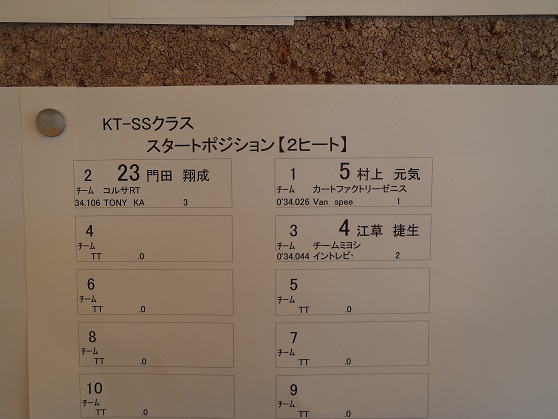 KT-SSクラス
スタートポジション【2ヒート】
2 23 門田 翔成
チーム コルサRT
34.106 TONY KA 3
1 5 村上 元気
チーム カートファクトリーゼニス
0'34.026 Van spee 1
4
チーム
TT .0
3 4 江草 捷生
チーム チームミヨシ
0'34.044 イントレピ 2
6
チーム
TT .0
5
チーム
TT .0
8
チーム
TT .0
7
チーム
TT .0
10
チーム
TT .0
9
チーム
TT .0